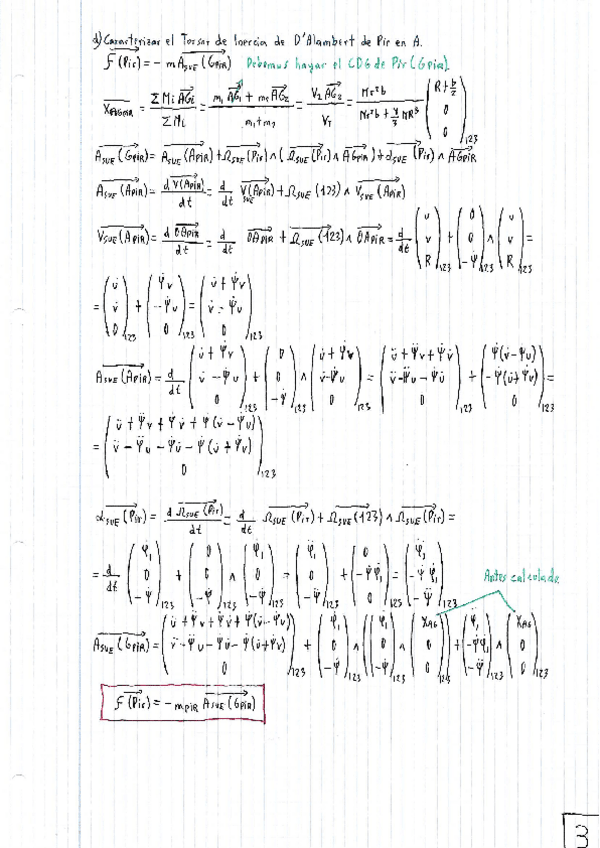 d) Caracterizar el Torsor de Inercia de D'Alambert de Pir en A.
f(Pir) = - m A_SUE (G_PIR) Debemos hayar el CDG de Pir (G_PIR)
X_AGPIR = Σ Mi AGi / Σ Mi = m1 AG1 + m2 AG2 / m1 + m2 = V2 AG2 / VT = πr²b / πr²b + 4/3 πR³ (R + b/2, 0, 0)_123
A_SUE (G_PIR) = A_SUE (A_PIR) + Ω_SUE (Pir) ∧ (Ω_SUE (Pir) ∧ AG_PIR) + α_SUE (Pir) ∧ AG_PIR
A_SUE (A_PIR) = d V(A_PIR) / dt = d/dt V_SUE (A_PIR) + Ω_SUE (123) ∧ V_SUE (A_PIR)
V_SUE (A_PIR) = d OA_PIR / dt = d/dt OA_PIR + Ω_SUE (123) ∧ OA_PIR = d/dt (u, v, R)_123 + (0, 0, -ψ̇)_123 ∧ (u, v, R)_123 =
= (u̇, v̇, 0)_123 + (ψ̇v, -ψ̇u, 0)_123 = (u̇ + ψ̇v, v̇ - ψ̇u, 0)_123
A_SUE (A_PIR) = d/dt (u̇ + ψ̇v, v̇ - ψ̇u, 0)_123 + (0, 0, -ψ̇)_123 ∧ (u̇ + ψ̇v, v̇ - ψ̇u, 0)_123 = (ü + ψ̈v + ψ̇v̇, v̈ - ψ̈u - ψ̇u̇, 0)_123 + (ψ̇(v̇ - ψ̇u), -ψ̇(u̇ + ψ̇v), 0)_123 =
= (ü + ψ̈v + ψ̇v̇ + ψ̇(v̇ - ψ̇u), v̈ - ψ̈u - ψ̇u̇ - ψ̇(u̇ + ψ̇v), 0)_123
α_SUE (Pir) = d Ω_SUE (Pir) / dt = d/dt Ω_SUE (Pir) + Ω_SUE (123) ∧ Ω_SUE (Pir) =
= d/dt (φ̇1, 0, -ψ̇)_123 + (0, 0, -ψ̇)_123 ∧ (φ̇1, 0, -ψ̇)_123 = (φ̈1, 0, -ψ̈)_123 + (0, -ψ̇φ̇1, 0)_123 = (φ̈1, -ψ̇φ̇1, -ψ̈)_123
Antes calculada
A_SUE (G_PIR) = (ü + ψ̈v + ψ̇v̇ + ψ̇(v̇ - ψ̇u), v̈ - ψ̈u - ψ̇u̇ - ψ̇(u̇ + ψ̇v), 0)_123 + (φ̇1, 0, -ψ̇)_123 ∧ ((φ̇1, 0, -ψ̇)_123 ∧ (X_AG, 0, 0)_123) + (φ̈1, -ψ̇φ̇1, -ψ̈)_123 ∧ (X_AG, 0, 0)_123
f(Pir) = - m_PIR A_SUE (G_PIR)
3